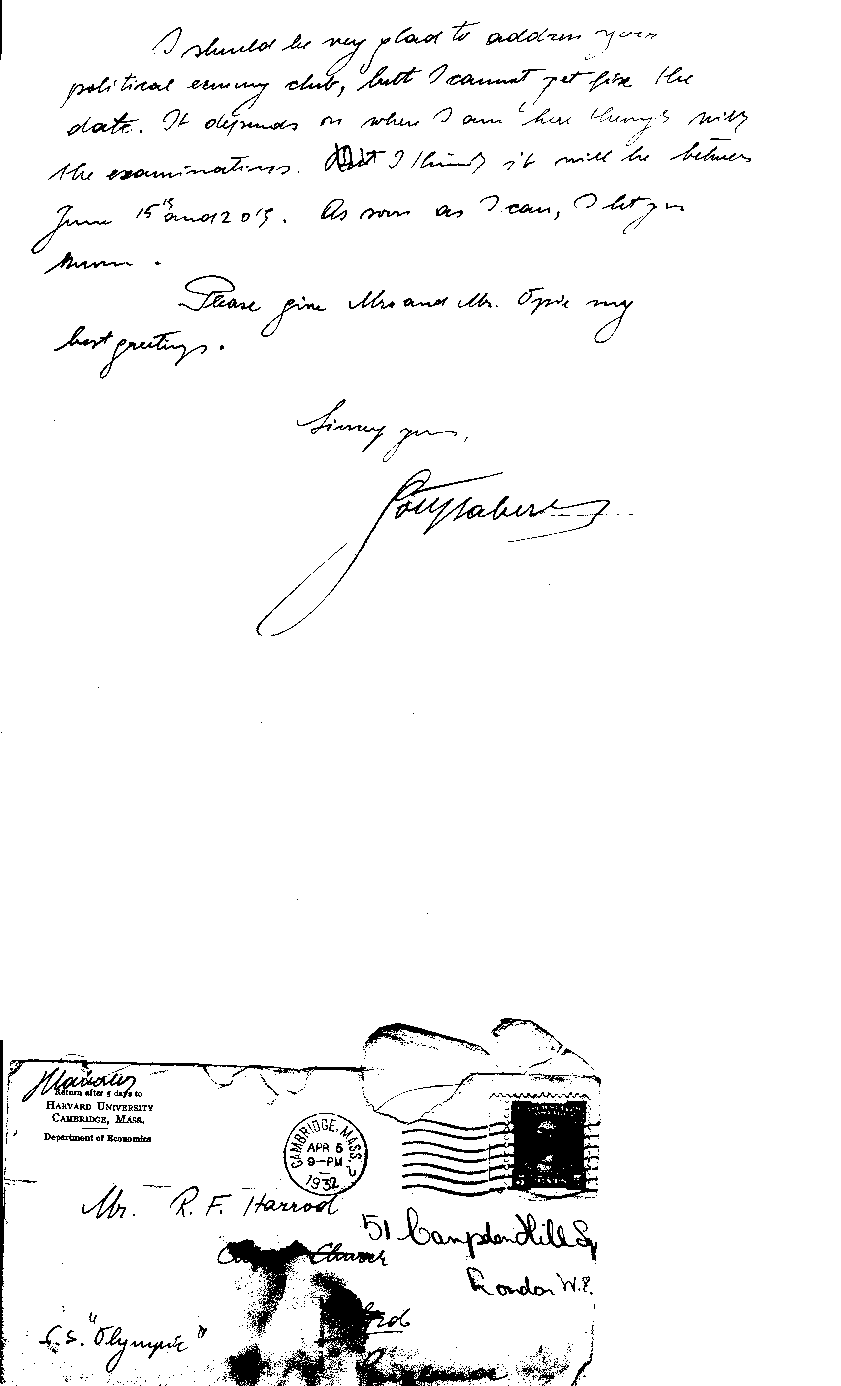 I should be very glad to address your
political economy club, but I cannot yet fix the
date. It depends on when I am here through with
the examinations. But I think it will be between
June 15th and 20th. As soon as I can, I let you
know.
Please give Mrs and Mr. Opie my
best greetings.
Sincerely yours,
GHaberler
Haberler
Return after 5 days to
HARVARD UNIVERSITY
CAMBRIDGE, MASS.
Department of Economics
CAMBRIDGE, MASS.
APR 5
9-PM
1932
Mr. R. F. Harrod
51 Campden Hill Sq
London W.8.
S.S. "Olympic"